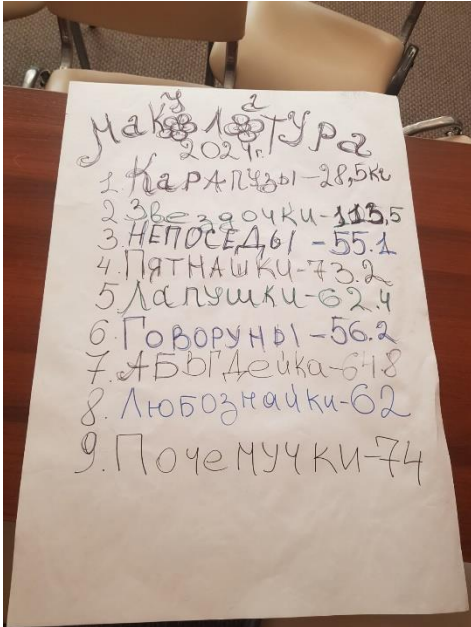 Макулатура
2024г.
1. КАРАПУЗЫ-28,5кг
2 Звездочки-113,5
3. НЕПОСЕДЫ-55.1
4. ПЯТНАШКИ-73.2
5 Лапушки-62.4
6. Говоруны-56.2
7. АБВГДейка-64.8
8. Любознайки-62
9. Почемучки-74